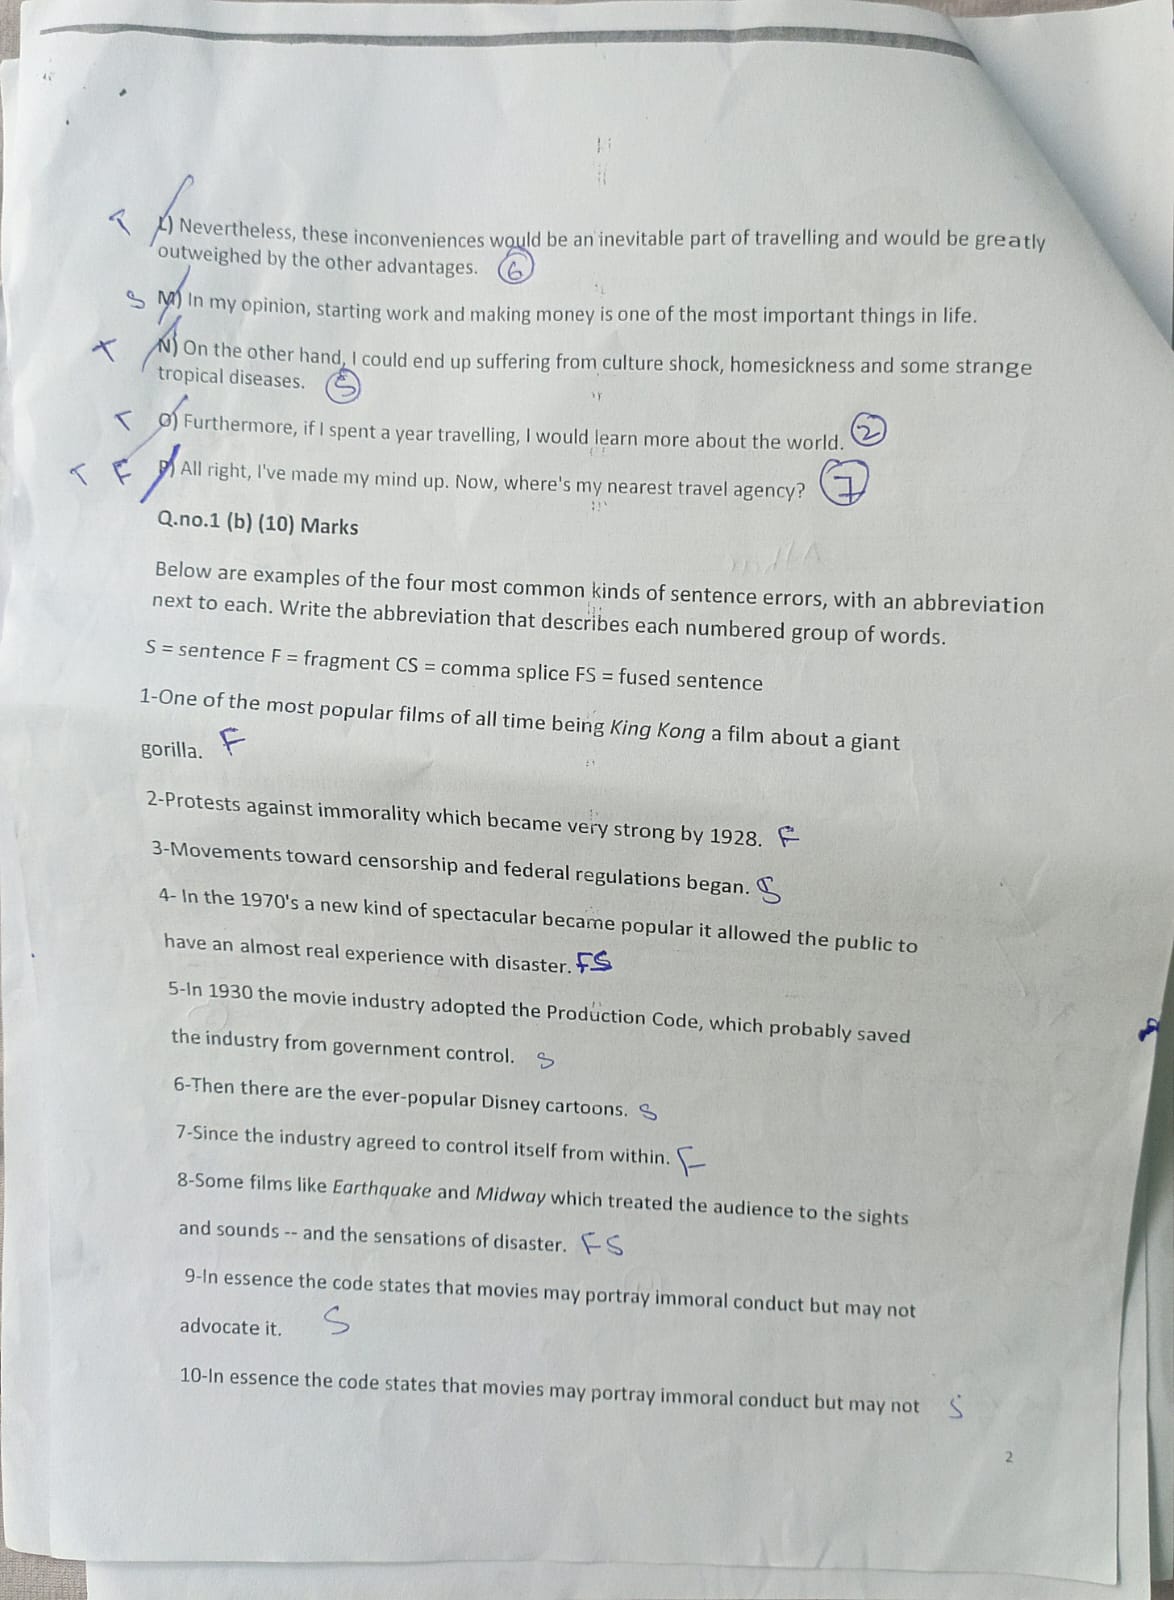 T L) Nevertheless, these inconveniences would be an inevitable part of travelling and would be greatly
outweighed by the other advantages. 6
S M) In my opinion, starting work and making money is one of the most important things in life.
T N) On the other hand, I could end up suffering from culture shock, homesickness and some strange
tropical diseases. 5
T O) Furthermore, if I spent a year travelling, I would learn more about the world. 2
T F P) All right, I've made my mind up. Now, where's my nearest travel agency? 7
Q.no.1 (b) (10) Marks
Below are examples of the four most common kinds of sentence errors, with an abbreviation
next to each. Write the abbreviation that describes each numbered group of words.
S = sentence F = fragment CS = comma splice FS = fused sentence
1-One of the most popular films of all time being King Kong a film about a giant
gorilla. F
2-Protests against immorality which became very strong by 1928. F
3-Movements toward censorship and federal regulations began. S
4- In the 1970's a new kind of spectacular became popular it allowed the public to
have an almost real experience with disaster. FS
5-In 1930 the movie industry adopted the Production Code, which probably saved
the industry from government control. S
6-Then there are the ever-popular Disney cartoons. S
7-Since the industry agreed to control itself from within. F
8-Some films like Earthquake and Midway which treated the audience to the sights
and sounds -- and the sensations of disaster. FS
9-In essence the code states that movies may portray immoral conduct but may not
advocate it. S
10-In essence the code states that movies may portray immoral conduct but may not S
2